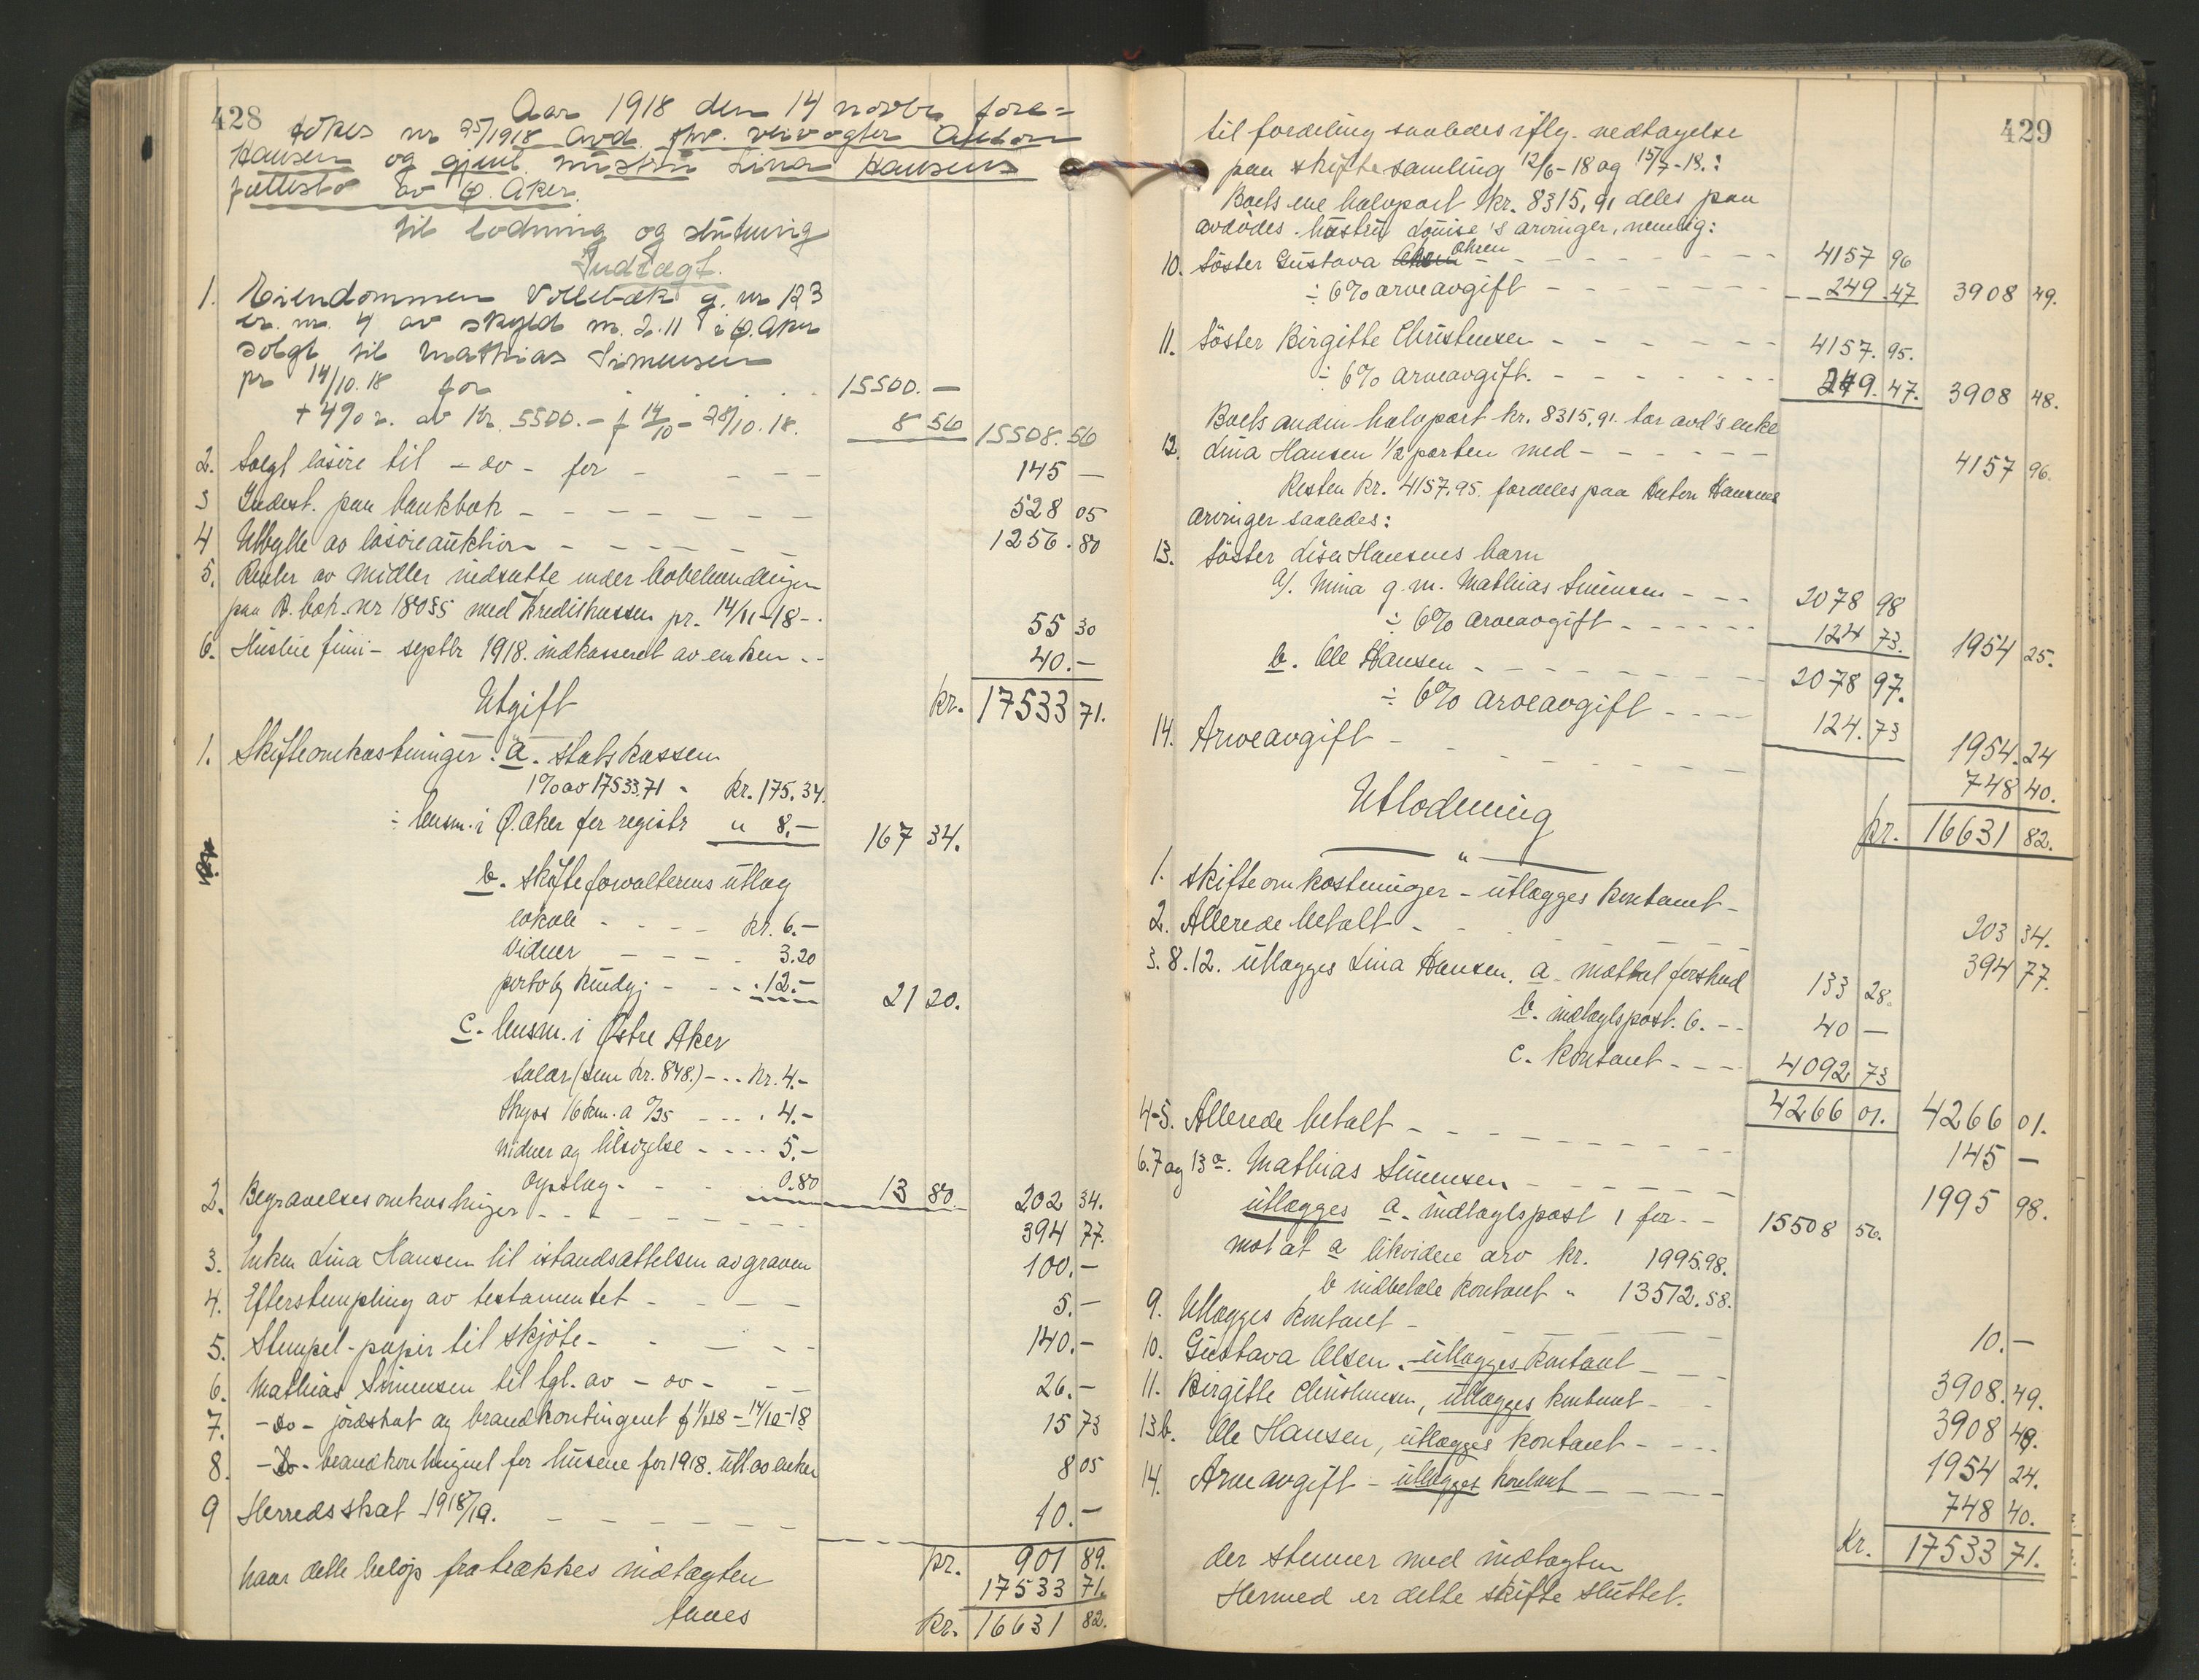 428
Aar 1918 den 14 novbr. fore=
tokes nr 25/1918 Avd. fhv. veivogter Anton
Hansen og gjenl. hustru Lina Hansens
fellesbo av Ø. Aker.
til lodning og slutning
Indtægt.
1. Eiendommen Vollebæk g. nr 123
br. nr. 4 av skyld m. 2.11 i Ø. Aker
solgt til Mathias Simensen
pr 14/10.18 for . . . . 15500. —
+ 4% r. av Kr. 5500.- f. 14/10 - 28/10.18. 8 56 15508. 56
2. Solgt løsøre til - do - for - - - - 145 —
3 Indest. paa bankbok - - - - - - 528 05
4 Utbytte av løsøreauktion - - - - - - 1256. 80
5. Renter av midler indsatte under bobehandlingen
paa B. bok. nr 18035 med Kreditkassen pr. 14/11-18 - . 55 30
6. Husleie juni - septbr 1918. indkasseret av enken . - 40. —
kr. 17533 71.
Utgift
1. Skifteomkostninger: a. statskassen
1% av 17533.71 - kr. 175.34.
÷ lensm. i Ø. Aker for registr " 8.— 167 34.
b. skifteforvalterens utlæg
lokale - - - - kr. 6.—
vidner - - - - 3.20
porto og kundgj. - - - . 12.— 21 20.
c. lensm. i Østre Aker
Salær (sum kr. 848.) - - . kr. 4.-
Skyss 16 km. a 0/25 - - - . 4.-
vidner og tilsigelse - - - - 5.—
Opslag - - - 0.80 13 80. 202 34.
2. Begravelsesomkostninger - - - - - - - 394 77.
3. Enken Lina Hansen til istandsættelsen av graven 100. —
4. Efterstempling av testamentet - - - - 5. —
5. Stempel-papir til skjøte - - - - - 140. —
6. Mathias Simensen til tgl. av - do - - - 26. —
7. - do - jordskat og brandkontingent f 1/1.18 - 14/10-18 15 73
8. - do - brandkontingent for husene for 1918. utl. av enken 8 05
9 Herredsskat 1918/19. - - - - - - 10. —
kr. 901 89.
naar dette beløp fratrækkes indtægten 17533 71.
faaes kr. 16631 82.
429
til fordeling saaledes iflg. vedtagelse
paa skiftesamling 12/6-18 og 15/7-18.:
Boets ene halvpart kr. 8315,91 deles paa
avdødes hustru Louise's arvinger, nemlig:
10. Søster Gustava Olsen - - - - - - - - 4157 96
÷ 6% arveavgift - - - - - - - 249. 47 3908 49.
11. Søster Birgitte Christensen - - - - - 4157. 95.
÷ 6% arveavgift. - - - - - - 249. 47. 3908 48.
Boets anden halvpart kr. 8315,91. tar avd's enke
12. Lina Hansen 1/2 parten med - - - - - - 4157 96.
Resten kr. 4157.95. fordeles paa Anton Hansens
arvinger saaledes:
13. Søster Lisa Hansens barn
a/. Mina g. m. Mathias Simensen - - - 2078 98
÷ 6% arveavgift - - - - - - 124 73. 1954 25.
b. Ole Hansen - - - - - - - 2078 97.
÷ 6% arveavgift - - - - 124. 73 1954. 24
14. Arveavgift - - - - - - - 748 40.
kr. 16631 82.
Utlodning
"
1. skifteomkostninger - utlægges kontant - 203 34.
2. Allerede betalt - - - - - - 394 77.
3. 8. 12. utlægges Lina Hansen. a. mottat forskud 133 28.
b. indtægtspost. 6. - - 40 —
c. kontant - - - 4092 73
4266 01. 4266 01.
4-5. Allerede betalt - - - - - - - - - 145 —
6.7 og 13 a. Mathias Simensen - - - - - - 1995 98.
utlægges a. indtægtspost 1 for - - 15508 56.
mot at a likvidere arv kr. 1995.98.
b indbetale kontant " 13512.58.
9. Utlægges kontant - - - - - - 10. —
10. Gustava Olsen. - utlægges kontant - - - 3908. 49.
11. Birgitte Christensen, utlægges kontant - - 3908 48.
13 b. Ole Hansen, utlægges kontant - - - - 1954 24.
14. Arveavgift - utlægges kontant - - - - 748 40.
Kr. 17533 71.
der stemmer med indtægten
Hermed er dette skifte sluttet.